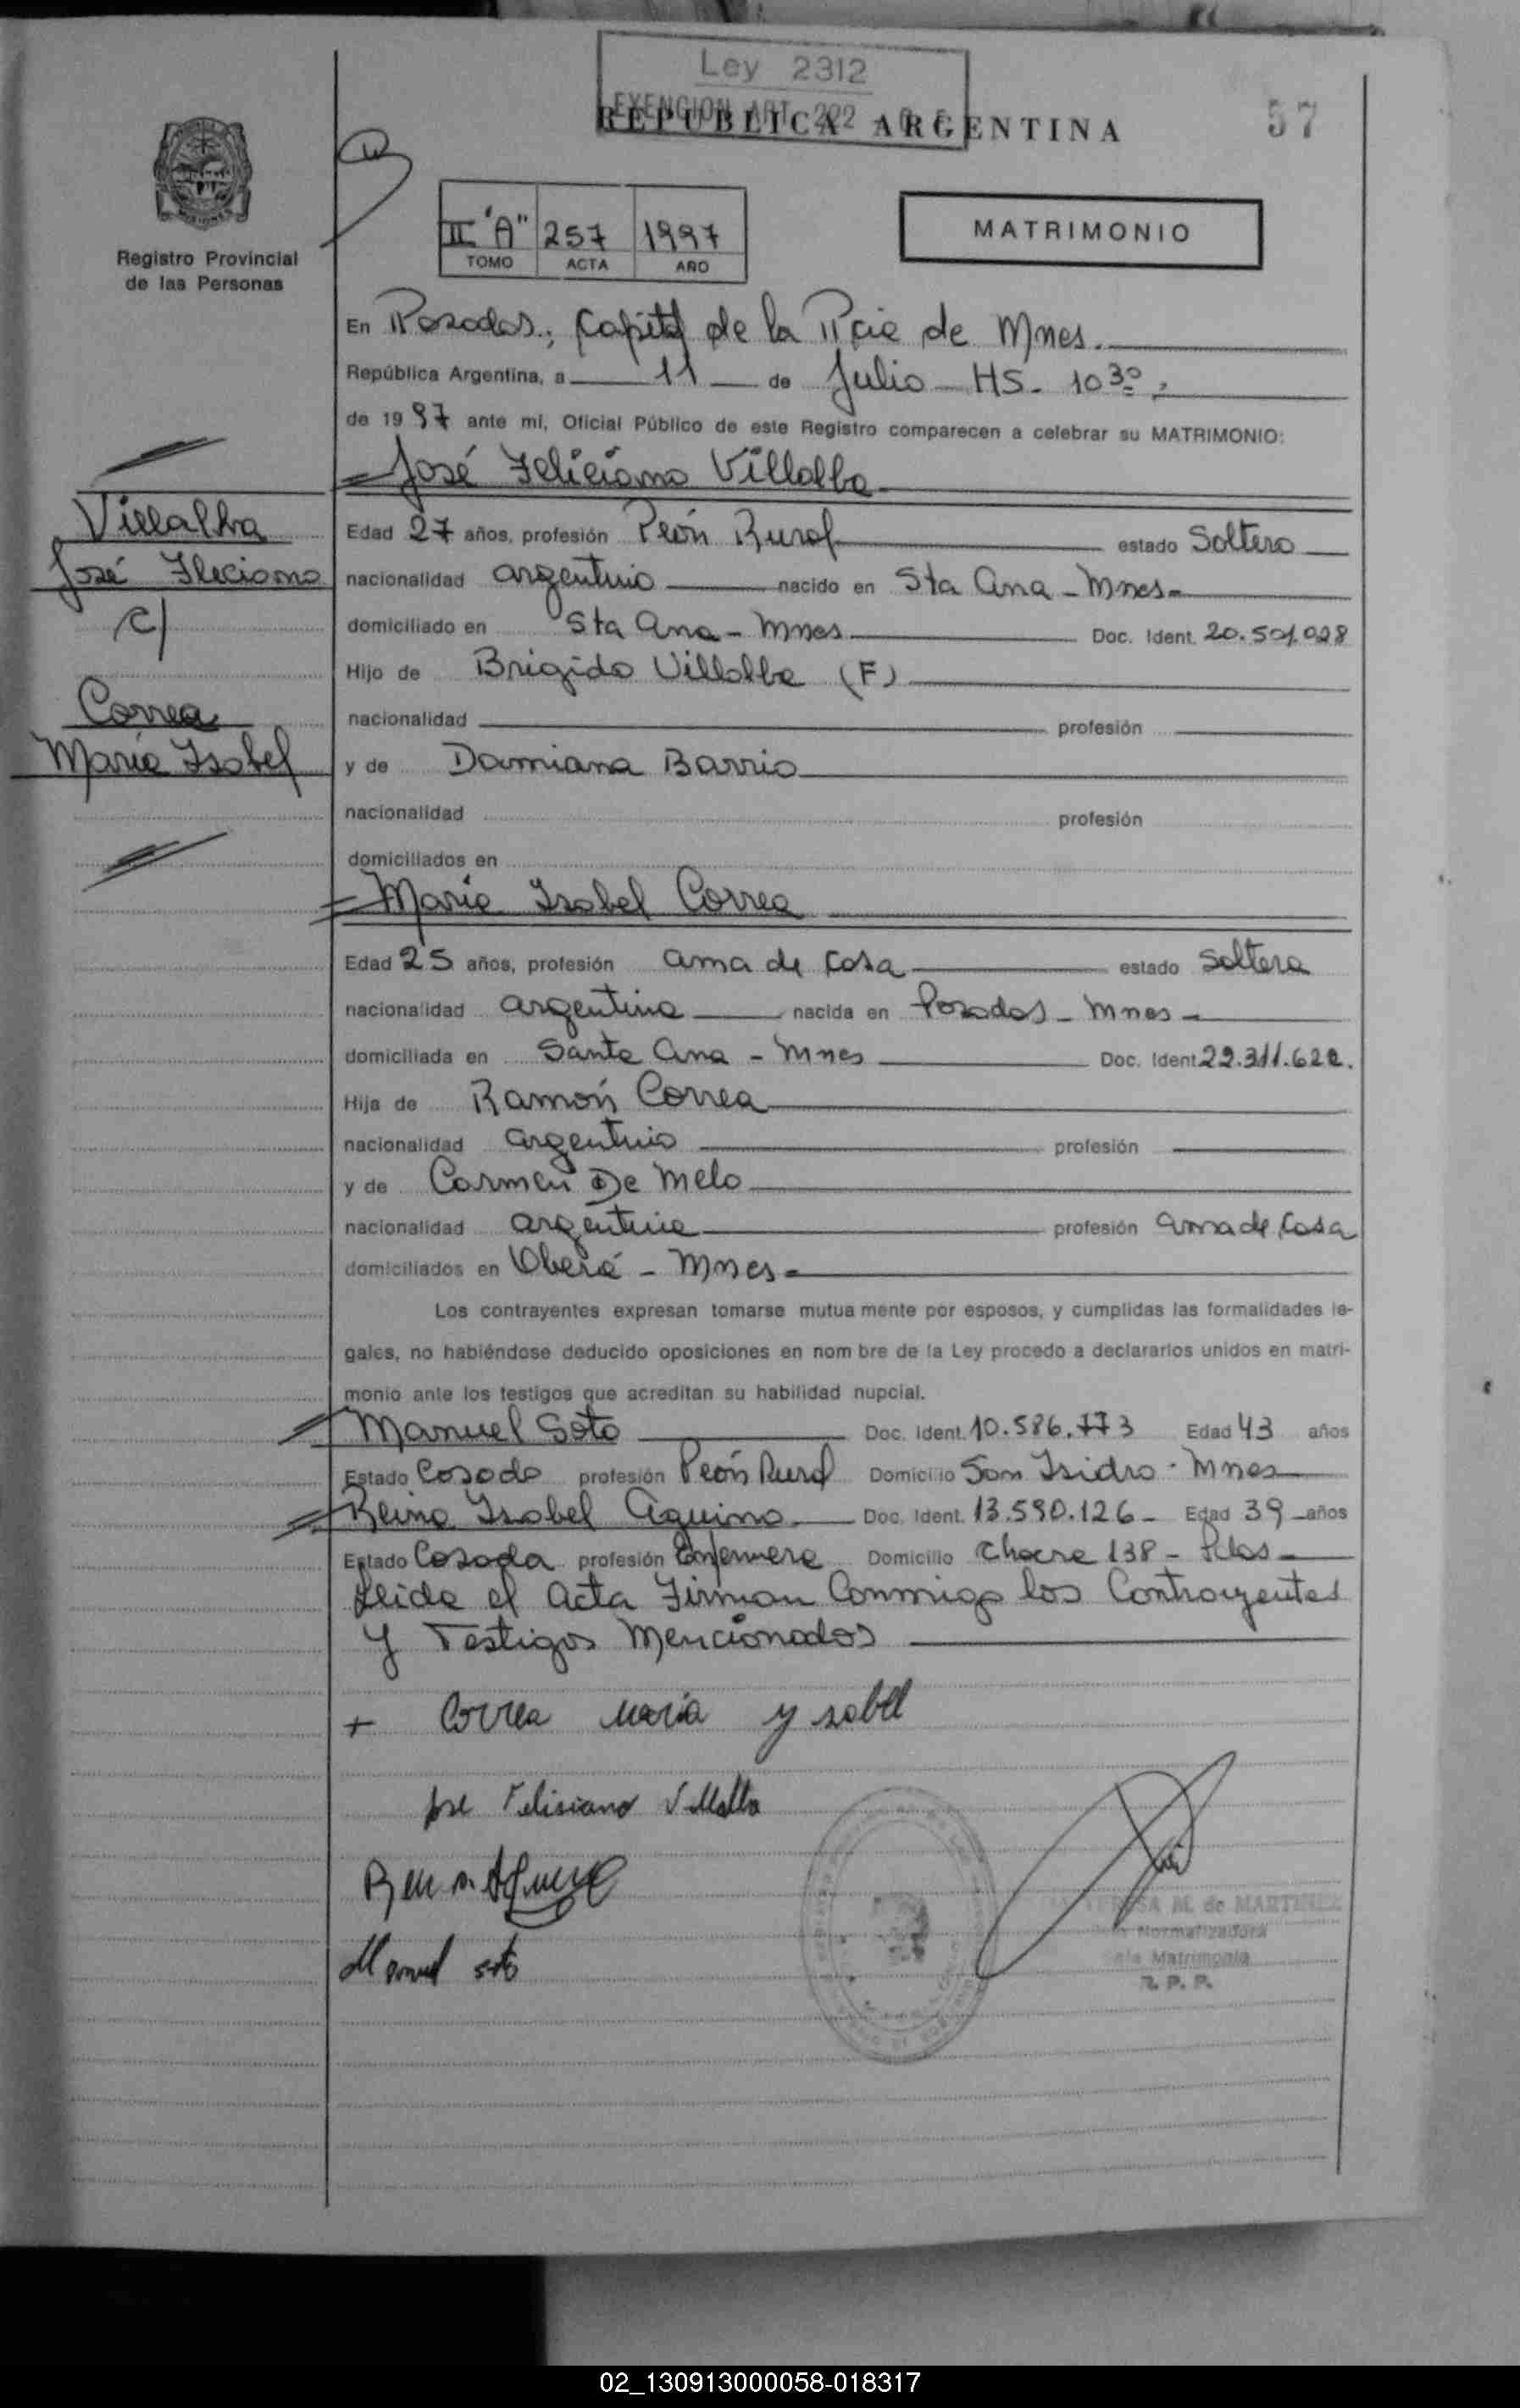 Ley 2312
EXENCION ART. 202
REPUBLICA ARGENTINA
57
Registro Provincial
de las Personas
II "A" 257 1997
TOMO ACTA AÑO
MATRIMONIO
En Posadas, Capital de la Pcia de Mnes.
República Argentina, a 11 de Julio - HS. 10 30,
de 19 97 ante mi, Oficial Público de este Registro comparecen a celebrar su MATRIMONIO:
José Feliciano Villalba
Villalba
José Feliciano
c/
Correa
María Isabel
Edad 27 años, profesión Peón Rural estado Soltero
nacionalidad argentino nacido en Sta Ana - Mnes-
domiciliado en Sta Ana - Mnes Doc. Ident. 20.501.028
Hijo de Brigido Villalba (F)
nacionalidad profesión
y de Damiana Barrio
nacionalidad profesión
domiciliados en
María Isabel Correa
Edad 25 años, profesión ama de casa estado Soltera
nacionalidad argentina nacida en Posadas - Mnes -
domiciliada en Santa Ana - Mnes Doc. Ident 22.311.622.
Hija de Ramón Correa
nacionalidad argentino profesión
y de Carmen De Melo
nacionalidad argentina profesión ama de Casa
domiciliados en Oberá - Mnes -
Los contrayentes expresan tomarse mutua mente por esposos, y cumplidas las formalidades le-
gales, no habiéndose deducido oposiciones en nom bre de la Ley procedo a declararlos unidos en matri-
monio ante los testigos que acreditan su habilidad nupcial.
Manuel Soto Doc. Ident. 10.586.773 Edad 43 años
Estado Casado profesión Peón Rural Domicilio San Isidro - Mnes
Reina Isabel Aquino Doc. Ident. 13.590.126 - Edad 39 años
Estado Casada profesión Enfermera Domicilio Chacra 138 - Pdas -
Leida el Acta Firman Conmigo los Contrayentes
y Testigos Mencionados
+ Correa maria ysabel
Jose Felisiano Villalba
Manuel soto
M. de MARTINEZ
Normalizadora
Matrimonio
R. P. P.
02_130913000058-018317